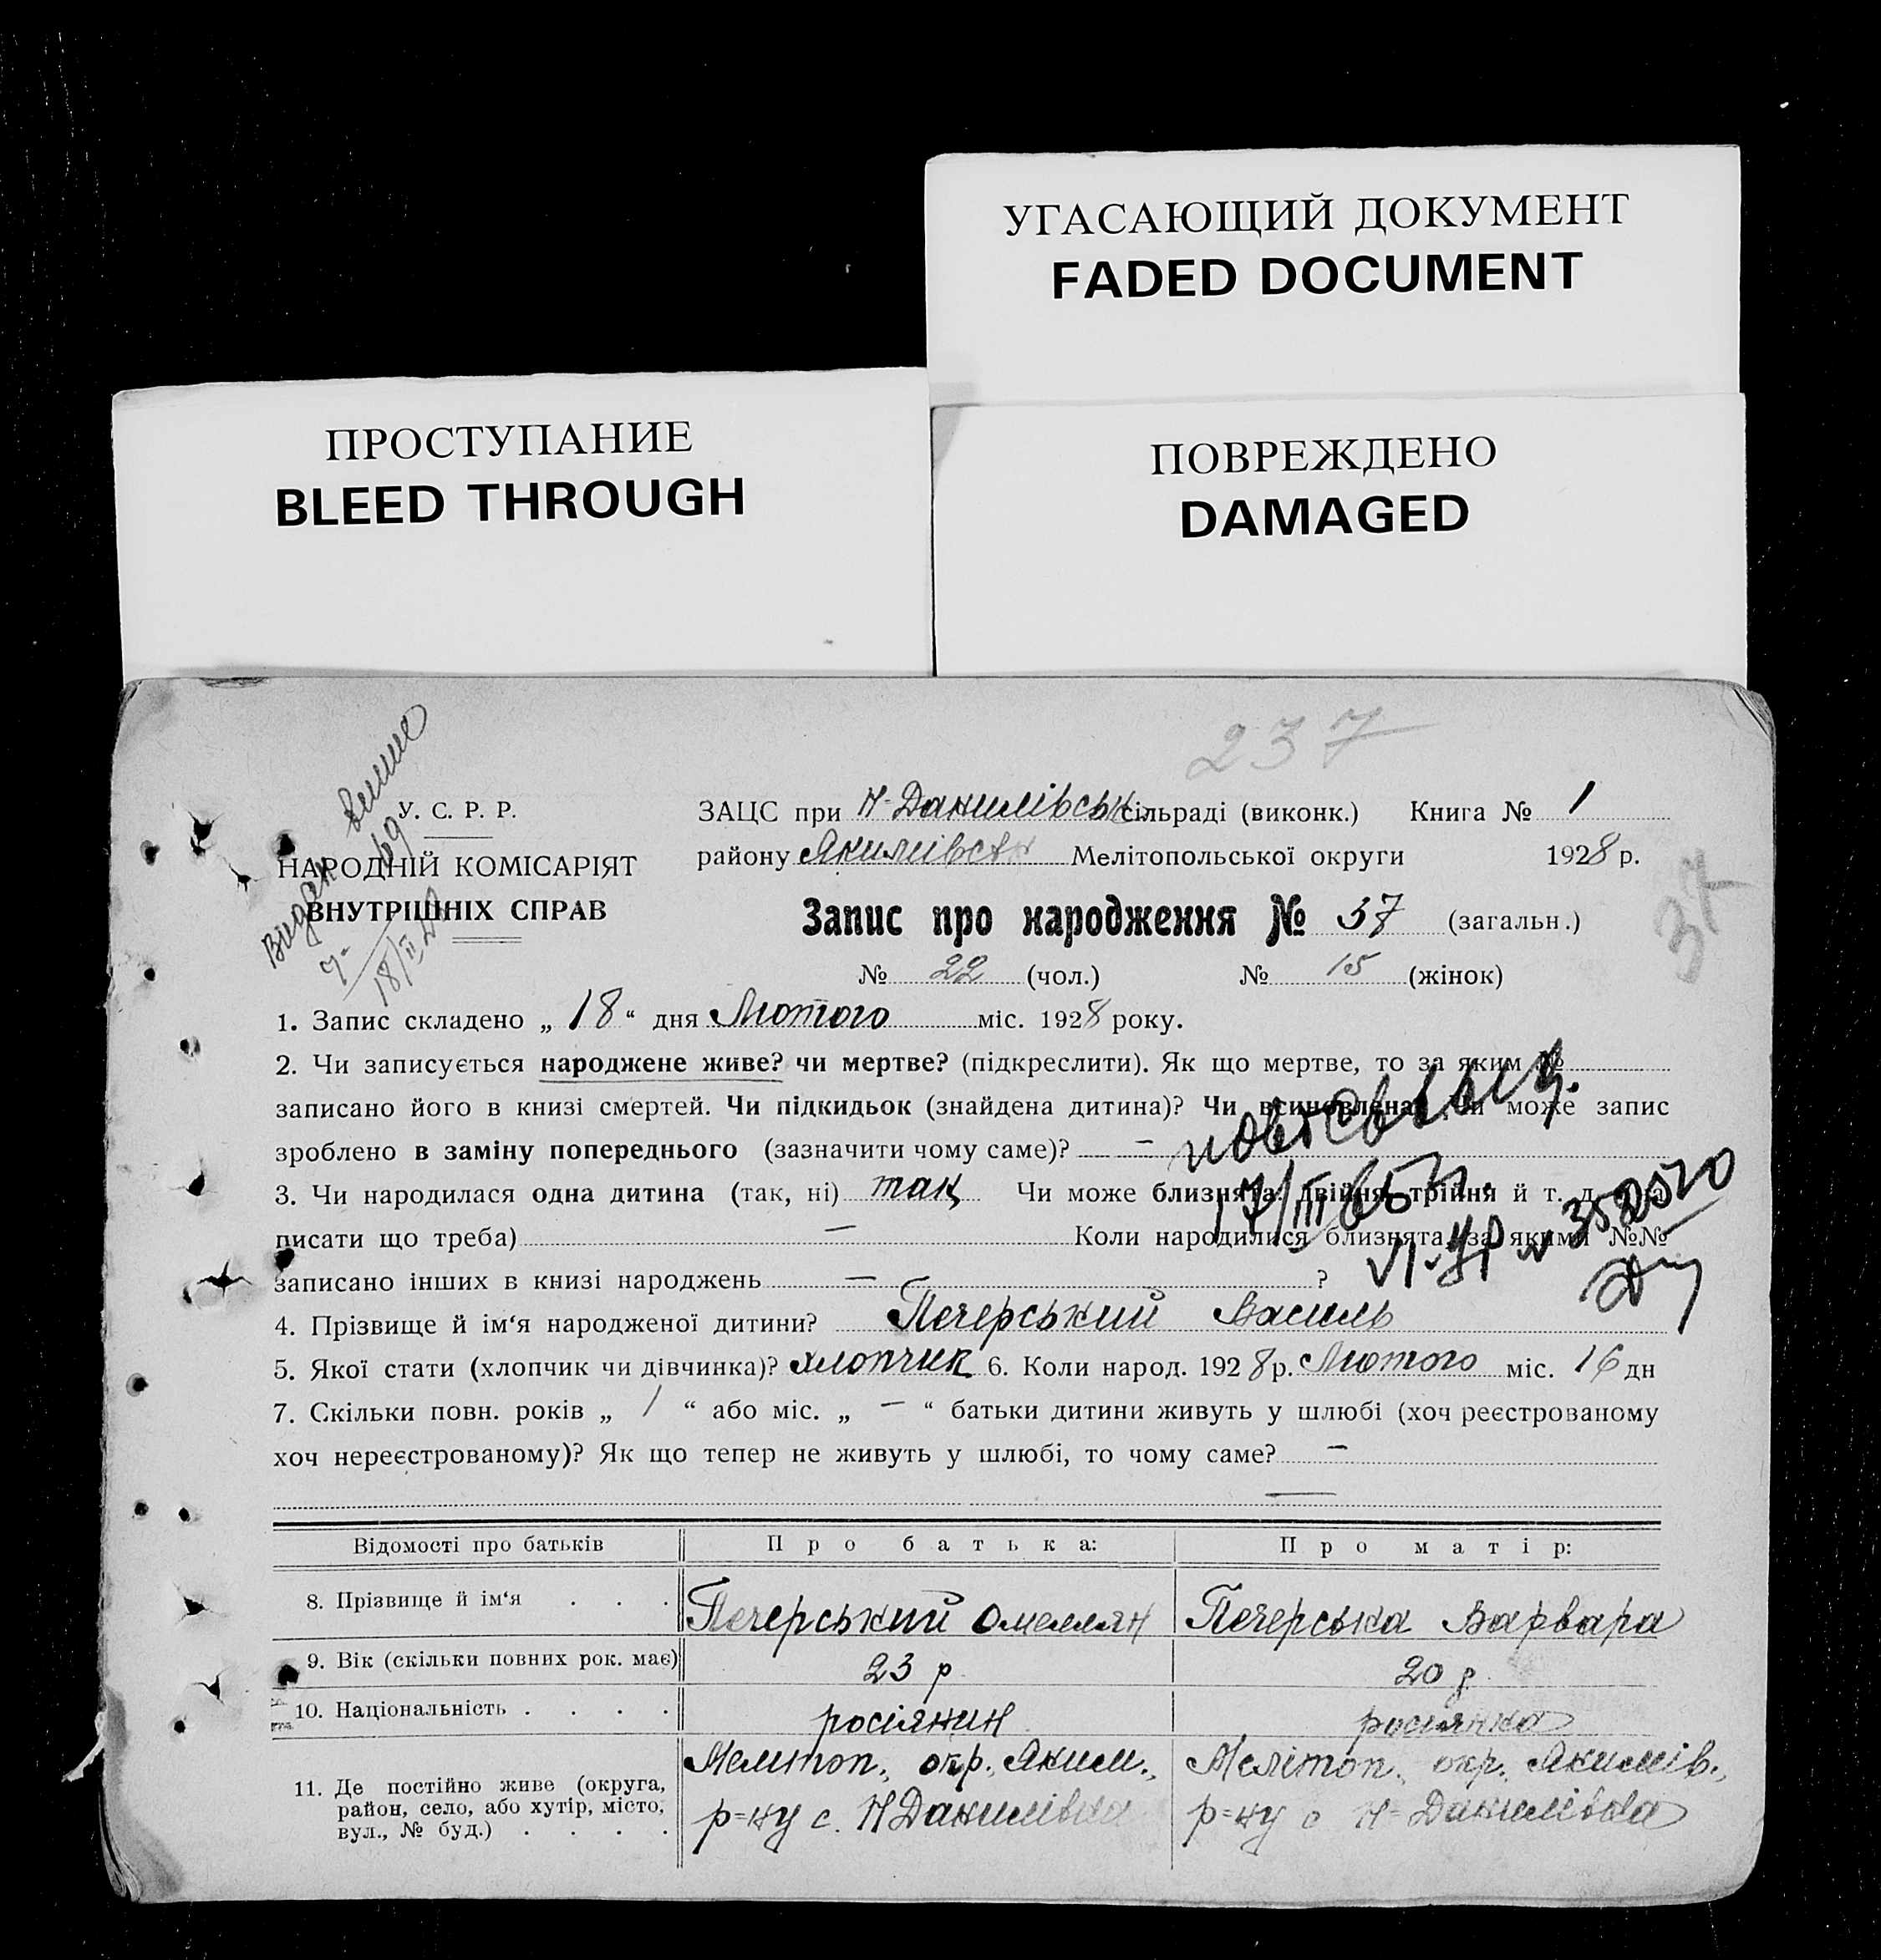 УГАСАЮЩИЙ ДОКУМЕНТ
FADED DOCUMENT
ПРОСТУПАНИЕ
BLEED THROUGH
ПОВРЕЖДЕНО
DAMAGED
237
У. С. Р. Р.
НАРОДНІЙ КОМІСАРІЯТ
ВНУТРІШНІХ СПРАВ
ЗАЦС при Н-Данилівськ. сільраді (виконк.) Книга № 1
району Якимівськ Мелітопольської округи 1928 р.
37
Запис про народження № 37 (загальн.)
№ 22 (чол.) № 15 (жінок)
1. Запис складено „ 18 “ дня Лютого міс. 1928 року.
2. Чи записується народжене живе? чи мертве? (підкреслити). Як що мертве, то за яким №
записано його в книзі смертей. Чи підкидьок (знайдена дитина)? Чи всиновлена? Чи може запис
зроблено в заміну попереднього (зазначити чому саме)? —
3. Чи народилася одна дитина (так, ні) так Чи може близнята: двійня, трійня й т. д.
писати що треба) — Коли народилися близнята, за якими №№
записано інших в книзі народжень — ?
17/III 65
4. Прізвище й ім‘я народженої дитини? Печерський Василь
5. Якої стати (хлопчик чи дівчинка)? хлопчик 6. Коли народ. 1928 р. Лютого міс. 16 дн
7. Скільки повн. років „ 1 “ або міс. „ — “ батьки дитини живуть у шлюбі (хоч реєстрованому
хоч нереєстрованому)? Як що тепер не живуть у шлюбі, то чому саме? —
—
Відомості про батьків Про батька: Про матір:
8. Прізвище й ім‘я . . . Печерський Омелян Печерська Варвара
9. Вік (скільки повних рок. має) 23 р. 20 р.
10. Національність . . . . росіянин росіянка
11. Де постійно живе (округа,
район, село, або хутір, місто,
вул., № буд.) . . . .
Мелитоп., окр., Яким.,
р=ну с. Н Данилівка
Мелітоп., окр., Якимів.,
р=ну с Н= Данилівка